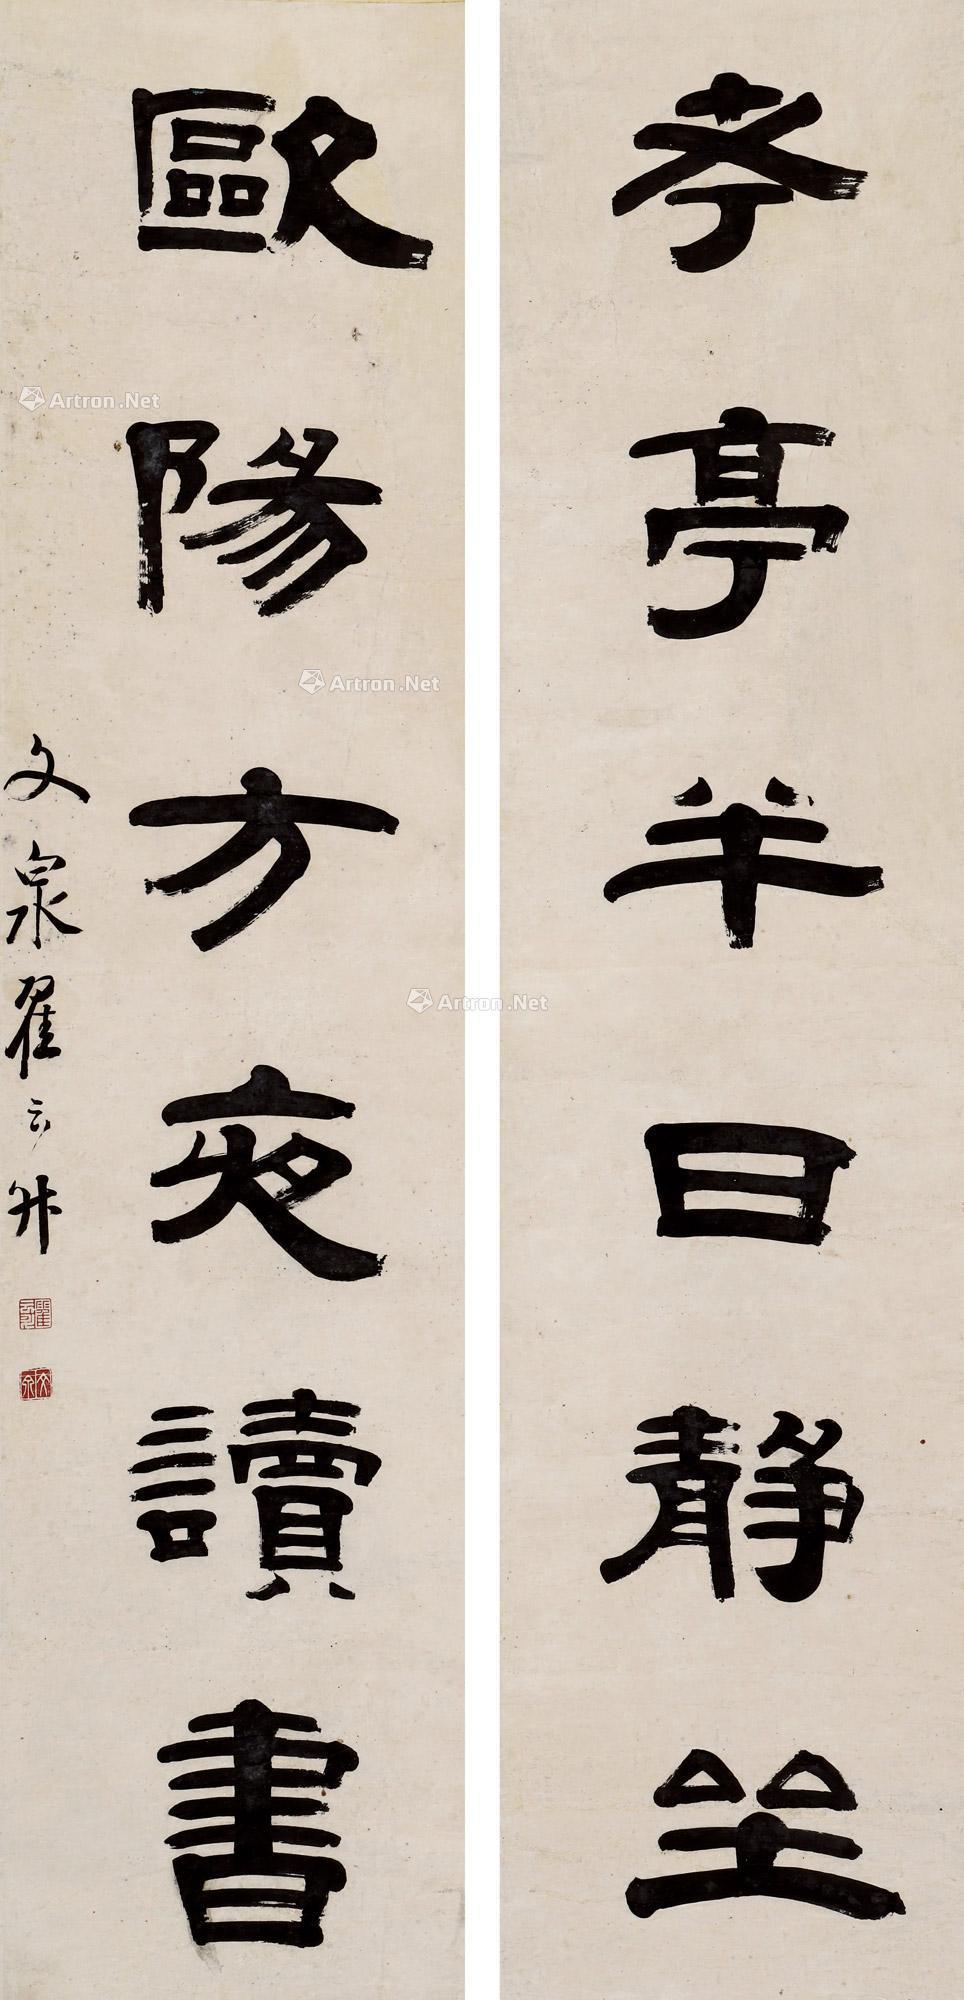 考亭半日静坐
歐陽方夜讀書
文泉翟云升
Artron.Net
Artron.Net
Artron.Net